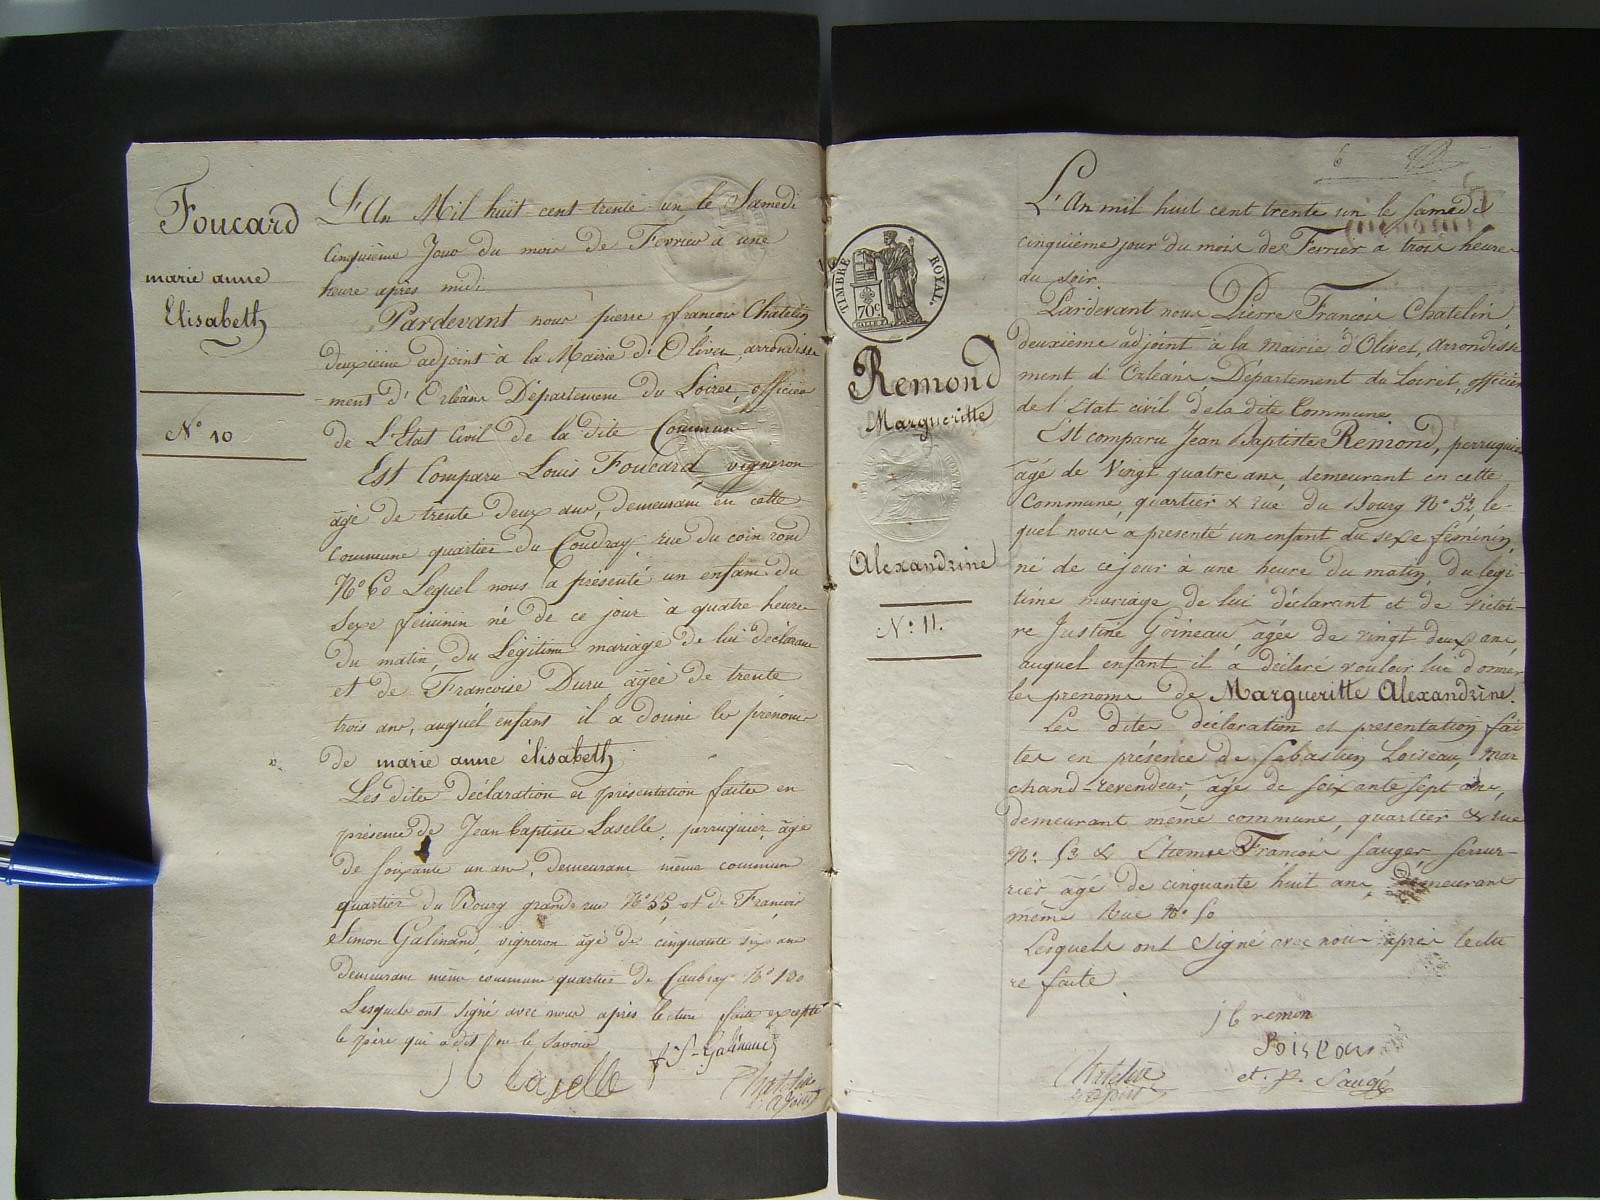 Foucard
marie anne
Elisabeth
N° 10
L'An Mil huit cent trente un le Samedi
Cinquième Jour du mois De Fevrier à une
heure après midi
Pardevant nous pierre françois Chatelin
deuxième adjoint à la Mairie d'Olivet, arrondisse
-ment d'Orléans Département du Loiret, officier
de L'Etat Civil de la dite Commune
Est Comparu Louis Foucard, vigneron
âgé de trente deux ans, demeurant en cette
Commune quartier du Coudray, rue du coin rond
N° 60 Lequel nous a présenté un enfant du
Sexe féminin né de ce jour à quatre heures
du matin, du Légitime mariage de lui déclarant
et de Francoise Duru âgée de trente
trois ans, auquel enfant il a donné les prénoms
de marie anne élisabeth
Les dites Déclaration et présentation faites en
présence de Jean baptiste Laselle, perruquier, âgé
de soixante un ans, demeurant même commune
quartier du Bourg grande rue N° 55 et de François
Simon Galinand, vigneron âgé de cinquante six ans
demeurant même commune quartier de N° 180
Lesquels ont signé avec nous après lecture faite excepté
le père qui a dit ne le savoir
J b Laselle
f. S. Galinand
Chatelin
adjoint
6
TIMBRE ROYAL.
70c
Remond
Margueritte
Alexandrine
N° 11.
L'An mil huit cent trente un le samedi
cinquième jour du mois de Fevrier à trois heures
du soir.
Pardevant nous Pierre François Chatelin
deuxième adjoint à la mairie d'Olivet, arrondisse
ment d'Orléans, Département du Loiret, officier
de l'Etat civil de la dite Commune
Est comparu Jean Baptiste Remond, perruquier
âgé de Vingt quatre ans, demeurant en cette
Commune, quartier & rue du Bourg N° 52, le-
quel nous a présenté un enfant du sexe féminin,
né de ce jour à une heure du matin, du légi-
time mariage de lui déclarant et de Victoi-
re Justine Goineau, âgée de vingt deux ans,
auquel enfant il a déclaré vouloir lui donner
les prenoms de Margueritte Alexandrine.
Les dites déclaration et présentation fai
tes en présence de Sebastien Loiseau, mar
chand-revendeur, âgé de soixante sept ans,
demeurant même commune, quartier & rue
N° 53 & Etienne François Sauger, serrur-
rier âgé de cinquante huit ans, demeurant
même Rue N° 50
Lesquels ont signé avec nous après lectu
re faite.
j b remon
Loiseau
et. f. Saugé
Chatelin
adjoint